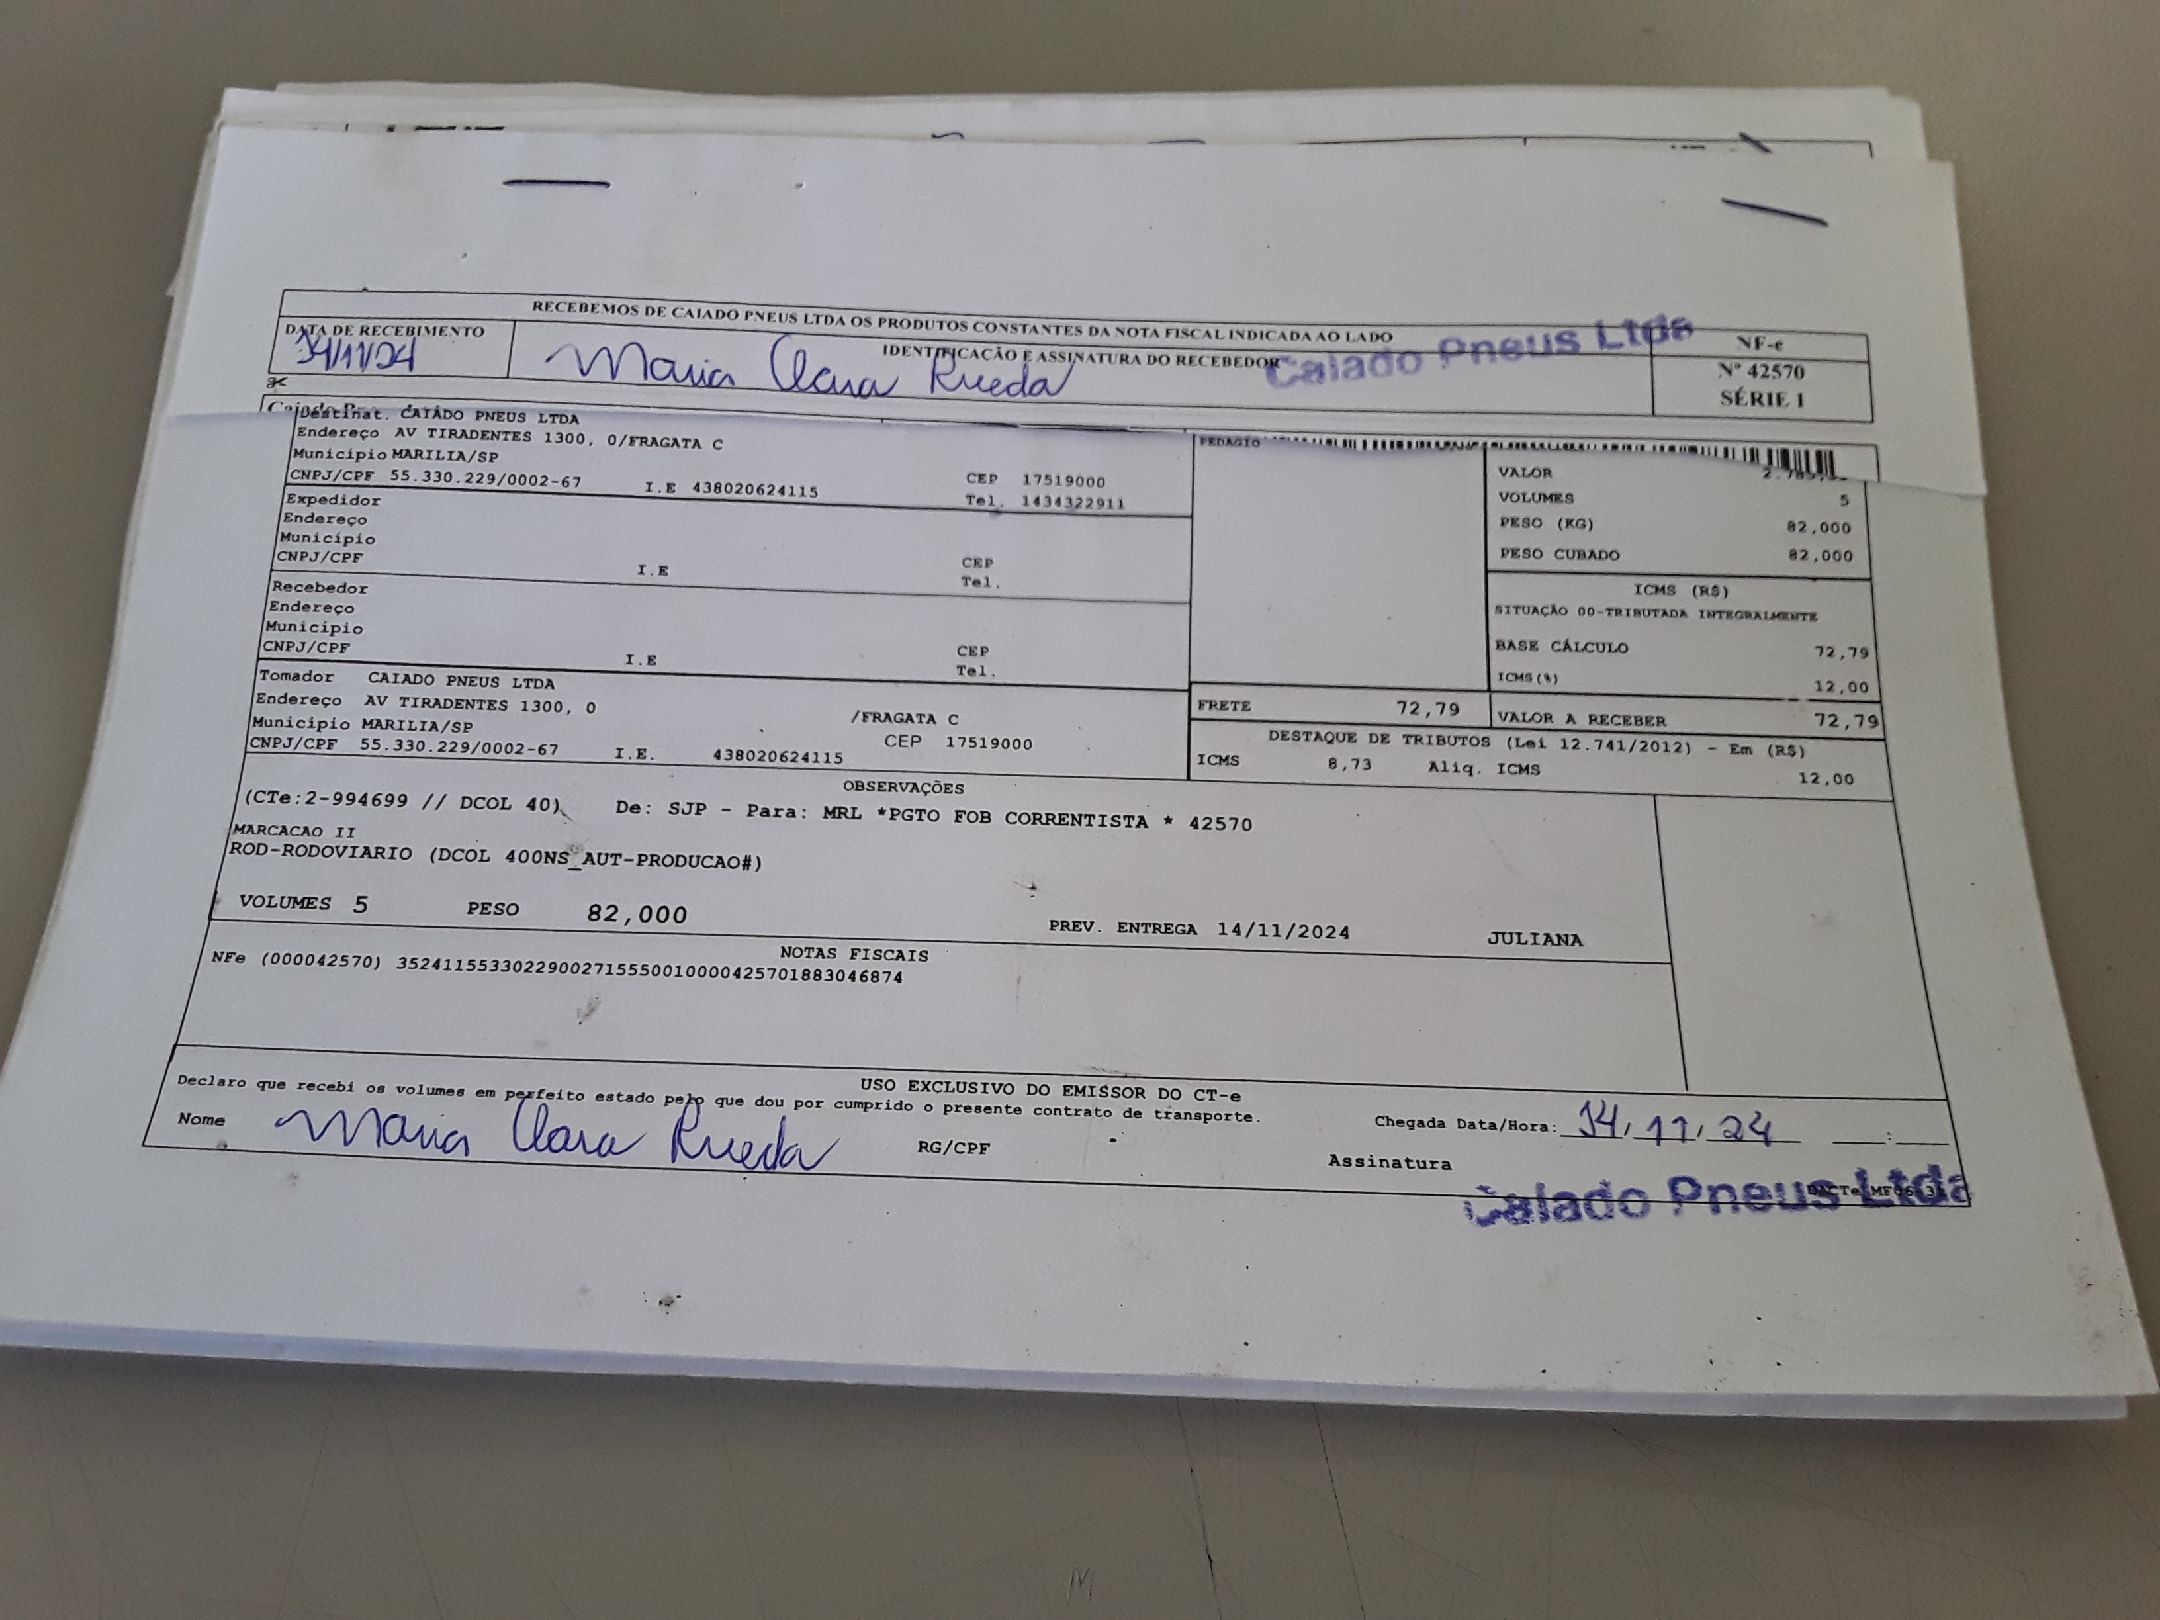 RECEBEMOS DE CAIADO PNEUS LTDA OS PRODUTOS CONSTANTES DA NOTA FISCAL INDICADA AO LADO
DATA DE RECEBIMENTO
14/11/24
IDENTIFICAÇÃO E ASSINATURA DO RECEBEDOR
Maria Clara Rueda
Caiado Pneus Ltda
NF-e
Nº 42570
SÉRIE 1
Destinat. CAIADO PNEUS LTDA
Endereço AV TIRADENTES 1300, 0/FRAGATA C
Município MARILIA/SP
CNPJ/CPF 55.330.229/0002-67 I.E 438020624115
CEP 17519000
Tel. 1434322911
Expedidor
Endereço
Município
CNPJ/CPF I.E
CEP
Tel.
Recebedor
Endereço
Município
CNPJ/CPF I.E
CEP
Tel.
Tomador CAIADO PNEUS LTDA
Endereço AV TIRADENTES 1300, 0 /FRAGATA C
Município MARILIA/SP CEP 17519000
CNPJ/CPF 55.330.229/0002-67 I.E. 438020624115
PEDAGIO
VALOR
VOLUMES 5
PESO (KG) 82,000
PESO CUBADO 82,000
ICMS (R$)
SITUAÇÃO 00-TRIBUTADA INTEGRALMENTE
BASE CÁLCULO 72,79
ICMS(%) 12,00
FRETE 72,79 VALOR A RECEBER 72,79
DESTAQUE DE TRIBUTOS (Lei 12.741/2012) - Em (R$)
ICMS 8,73 Aliq. ICMS 12,00
OBSERVAÇÕES
(CTe:2-994699 // DCOL 40) De: SJP - Para: MRL *PGTO FOB CORRENTISTA * 42570
MARCACAO II
ROD-RODOVIARIO (DCOL 400NS_AUT-PRODUCAO#)
VOLUMES 5 PESO 82,000 PREV. ENTREGA 14/11/2024 JULIANA
NOTAS FISCAIS
NFe (000042570) 352411553302290002715550010000425701883046874
USO EXCLUSIVO DO EMISSOR DO CT-e
Declaro que recebi os volumes em perfeito estado pelo que dou por cumprido o presente contrato de transporte.
Chegada Data/Hora: 14/11/24 __:__
Nome Maria Clara Rueda RG/CPF Assinatura
Caiado Pneus Ltda